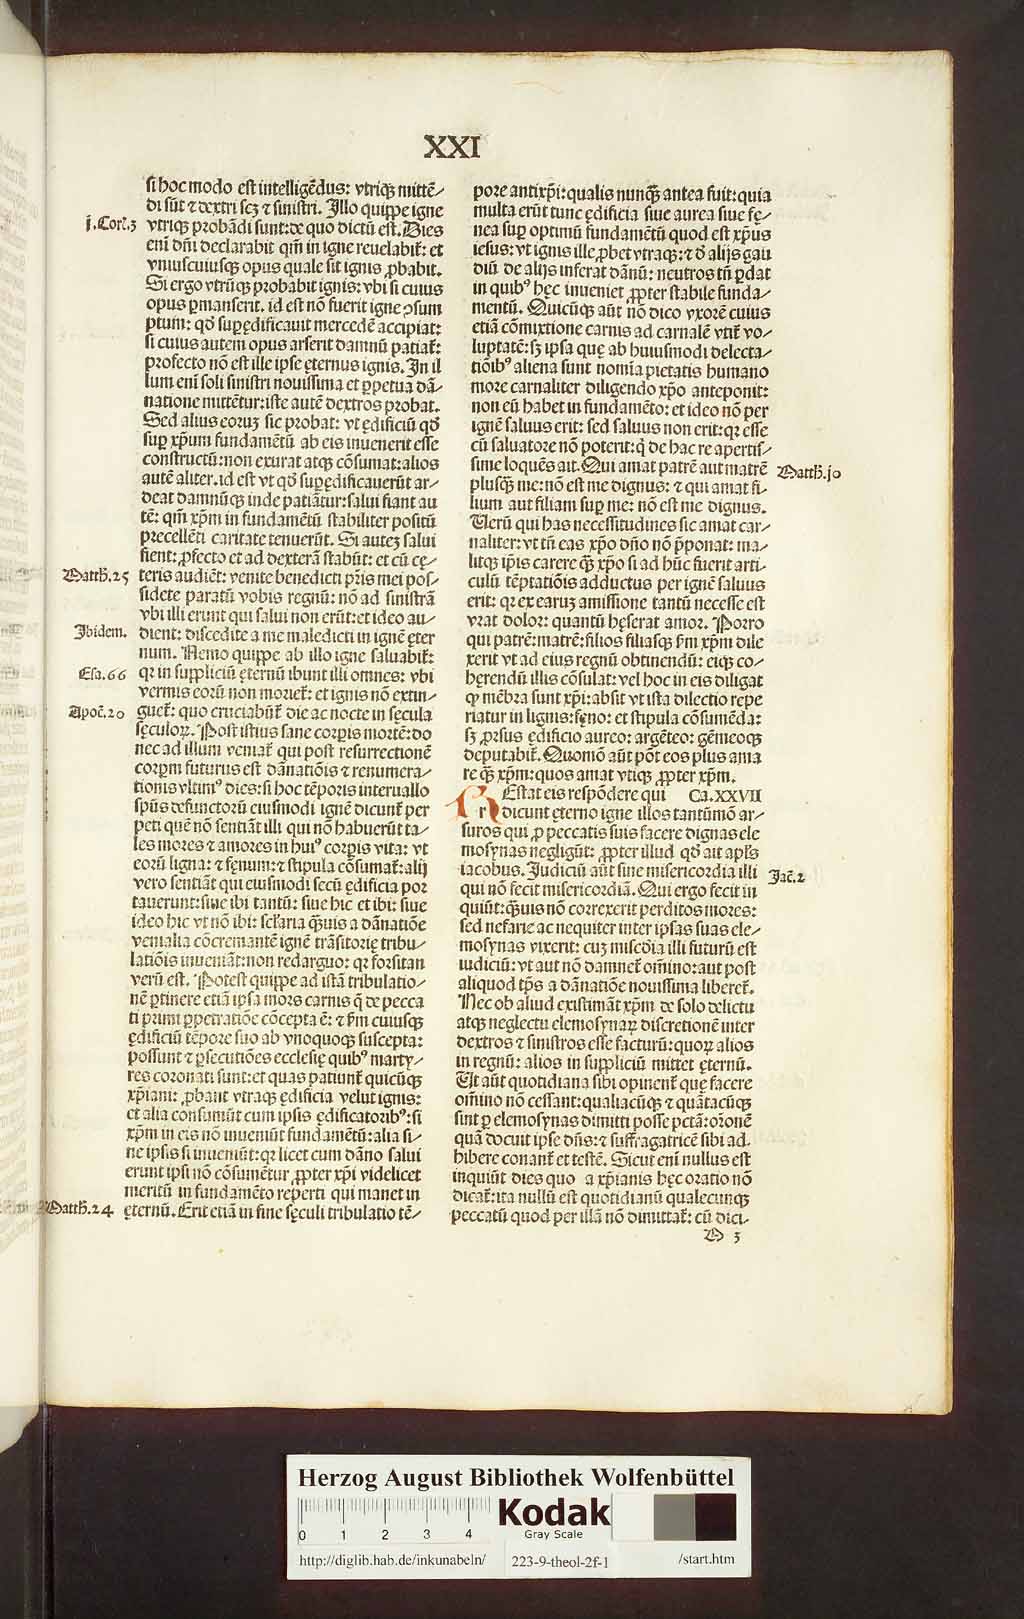 XXI
si hoc modo est intelligēdus: vtriqꝫ mittē⸗
di sūt ⁊ dextri scꝫ ⁊ sinistri. Illo quippe igne
j.Cort.3
vtriqꝫ probādi sunt: de quo dictū est. Dies
eni dn̄i declarabit qm̄ in igne reuelabit̄: et
vniuscuiusqꝫ opus quale sit ignis ꝓbabit.
Si ergo vtrūqꝫ probabit ignis: vbi si cuius
opus ꝑmanserit. id est nō fuerit igne ꝯsum
ptum: qd̄ suꝑedificauit mercedē accipiat:
si cuius autem opus arserit damnū patiat̄:
profecto nō est ille ipse ęternus ignis. In il
lum eni soli sinistri nouissima et ꝑpetua dā⸗
natione mittētur: iste autē dextros probat.
Sed alius eoruꝫ sic probat: vt ędificiū qd̄
suꝑ xp̄um fundamētū ab eis inuenerit esse
constructū: non exurat atqꝫ cōsumat: alios
autē aliter. id est vt qd̄ suꝑedificauerūt ar⸗
deat damnūqꝫ inde patiātur: salui fiant au
tē: qm̄ xp̄m in fundamētū stabiliter positū
precellēti caritate tenuerūt. Si auteꝫ salui
fient: ꝓfecto et ad dexterā stabūt: et cū cę⸗
Matth.25
teris audiēt: venite benedicti pr̄is mei pos⸗
sidete paratū vobis regnū: nō ad sinistrā
vbi illi erunt qui salui non erūt: et ideo au⸗
Ibidem.
dient: discedite a me maledicti in ignē ęter
num. Nemo quippe ab illo igne saluabit̄:
Esa.66
qr in suppliciū ęternū ibunt illi omnes: vbi
vermis eorū non moriet̄: et ignis nō extin⸗
Apoc̄.20
guet̄: quo cruciabūt̄ die ac nocte in sęcula
sęculoꝝ. Post istius sane corꝑis mortē: do
nec ad illum veniat̄ qui post resurrectionē
corꝑm futurus est dānatiōis ⁊ renumera⸗
tionis vltim⁹ dies: si hoc tēporis interuallo
spūs defunctorū eiusmodi ignē dicunt̄ per
peti quē nō sentiāt illi qui nō habuerūt ta⸗
les mores ⁊ amores in hui⁹ corꝑis vita: vt
eorū ligna: ⁊ fęnum: ⁊ stipula cōsumat̄: alij
vero sentiāt qui eiusmodi secū ędificia por
tauerunt: siue ibi tantū: siue hic et ibi: siue
ideo hic vt nō ibi: sec̄laria q̄uis a dānatiōe
venialia cōcremantē ignē trāsitorię tribu⸗
latiōis inueniāt: non redarguo: qr forsitan
verū est. Potest quippe ad istā tribulatio⸗
nē ꝑtinere etiā ip̄sa mors carnis q̄ de pecca
ti primi ꝑpetratiōe cōcepta ē: ⁊ ẜm cuiusqꝫ
ędificiū tēpore suo ab vnoquoqꝫ suscepta:
possunt ⁊ ꝑsecutiōes ecclesię quib⁹ marty⸗
res coronati sunt: et quas patiunt̄ quicūqꝫ
xp̄iani: ꝓbant vtraqꝫ ędificia velut ignis:
et alia consumūt cum ipsis ędificatorib⁹: si
xp̄m in eis nō inueniūt fundamētū: alia si⸗
ne ipsis si inueniūt: qr licet cum dāno salui
erunt ipsi nō cōsumētur ꝓpter xp̄i videlicet
meritū in fundamēto reperti qui manet in
Matth.24
ęternū. Erit etiā in fine sęculi tribulatio tē⸗
pore antixp̄i: qualis nunq̄ antea fuit: quia
multa erūt tunc ędificia siue aurea siue fę⸗
nea suꝑ optimū fundamētū quod est xp̄us
iesus: vt ignis ille ꝓbet vtraqꝫ: ⁊ d̄ alijs gau
diū de alijs inferat dānū: neutros tn̄ ꝑdat
in quib⁹ hęc inueniet ꝓpter stabile funda⸗
mentū. Quicūqꝫ aūt nō dico vxorē cuius
etiā cōmixtione carnis ad carnalē vtit̄ vo⸗
luptatē: sꝫ ipsa quę ab huiusmodi delecta⸗
tiōib⁹ aliena sunt nomīa pietatis humano
more carnaliter diligendo xp̄o anteponit:
non eū habet in fundamēto: et ideo nō per
ignē saluus erit: sed saluus non erit: qr esse
cū saluatore nō poterit: q̄ de hac re apertis⸗
sime loquēs ait. Qui amat patrē aut matrē
Matth.jo
plusq̄ me: nō est me dignus: ⁊ qui amat fi⸗
lium aut filiam suꝑ me: nō est me dignus.
Uerū qui has necessitudines sic amat car⸗
naliter: vt tn̄ eas xp̄o dn̄o nō p̄ponat: ma⸗
litqꝫ ip̄is carere q̄ xp̄o si ad hūc fuerit arti⸗
culū tēptatiōis adductus per ignē saluus
erit: qr ex earuꝫ amissione tantū necesse est
vrat dolor: quantū hęserat amor. Porro
qui patrē: matrē: filios filiasqꝫ ẜm xp̄m dile
xerit vt ad eius regnū obtinendū: eiqꝫ co⸗
hęrendū illis cōsulat: vel hoc in eis diligat
qꝙ mēbra sunt xp̄i: absit vt ista dilectio repe
riatur in lignis: fęno: et stipula cōsumēda:
sꝫ ꝓrsus ędificio aureo: argēteo: gēmeoqꝫ
deputabit̄. Quomō aūt pōt eos plus ama
re q̄ xp̄m: quos amat vtiqꝫ ꝓpter xp̄m.
REstat eis respōdere qui Ca.XXVII
r dicunt ęterno igne illos tantūmō ar⸗
suros qui ꝓ peccatis suis facere dignas ele
mosynas negligūt: ꝓpter illud qd̄ ait apl̄s
iacobus. Judiciū aūt sine misericordia illi
Jac̄.2
qui nō fecit misericordiā. Qui ergo fecit in
quiūt: q̄uis nō correxerit perditos mores:
sed nefarie ac nequiter inter ipsas suas ele⸗
mosynas vixerit: cuꝫ misc̄dia illi futurū est
iudiciū: vt aut nō damnet̄ om̄ino: aut post
aliquod tp̄s a dānatiōe nouissima liberet̄.
Nec ob aliud existimāt xp̄m de solo delictu
atqꝫ neglectu elemosynaꝝ discretionē inter
dextros ⁊ sinistros esse facturū: quoꝝ alios
in regnū: alios in suppliciū mittet ęternū.
Ut aūt quotidiana sibi opinent̄ quę facere
om̄ino nō cessant: qualiacūqꝫ ⁊ quātacūqꝫ
sint ꝑ elemosynas dimitti posse pctā: or̄onē
quā docuit ipse dn̄s: ⁊ suffragatricē sibi ad
hibere conant̄ et testē. Sicut eni nullus est
inquiūt dies quo a xp̄ianis hęc oratio nō
dicat̄: ita nullū est quotidianū qualecunqꝫ
peccatū quod per illā nō dimittat̄: cū dici⸗
D 3
Herzog August Bibliothek Wolfenbüttel
0 1 2 3 4
Kodak
Gray Scale
http://diglib.hab.de/inkunabeln/ 223-9-theol-2f-1 /start.htm